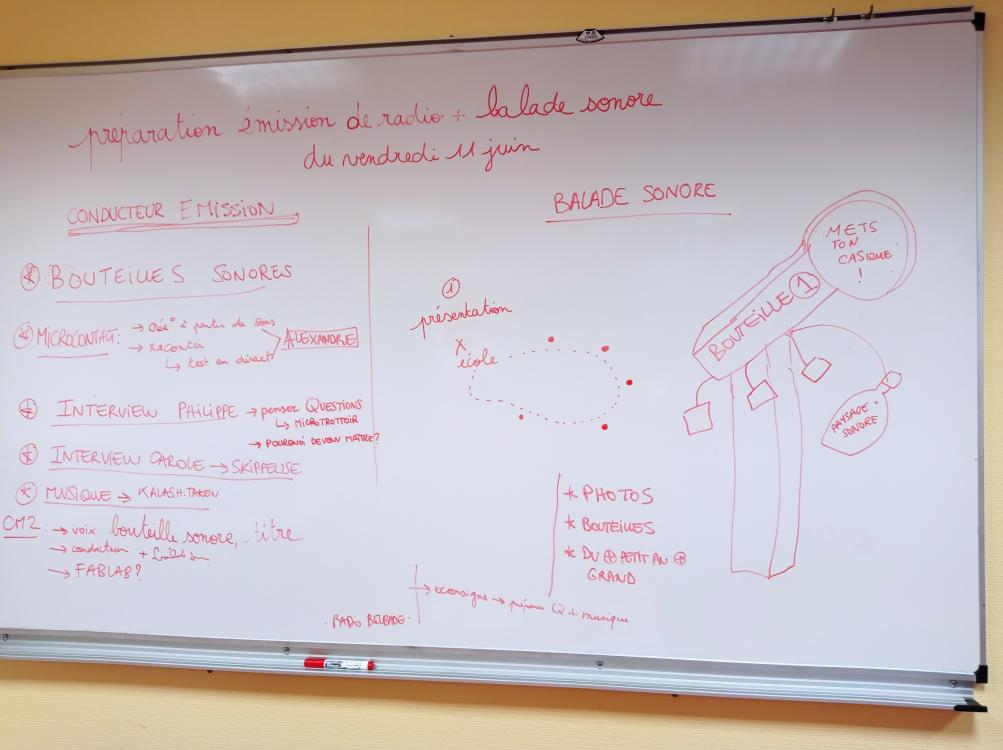 préparation émission de radio + balade sonore
du vendredi 11 juin
CONDUCTEUR EMISSION
BOUTEILLES SONORES
MICROCONTAG: → créa° à partir de sons
→ raconter
↳ test en direct
ALEXANDRE
INTERVIEW PHILIPPE → penser QUESTIONS
↳ MICROTROTTOIR
→ POURQUOI DEVENIR MAITRE?
INTERVIEW CAROLE → SKIPPEUSE
MUSIQUE → KALASH.TAKEN
CM2: → voix bouteille sonore, titre
→ conducteur +
→ FABLAB?
BALADE SONORE
1
présentation
X
école
METS
TON
CASQUE
!
BOUTEILLE 1
PAYSAGE
SONORE
* PHOTOS
* BOUTEILLES
* DU ⊕ PETIT AU ⊕
GRAND
RADIO
→ consigne → préparer Q + musique